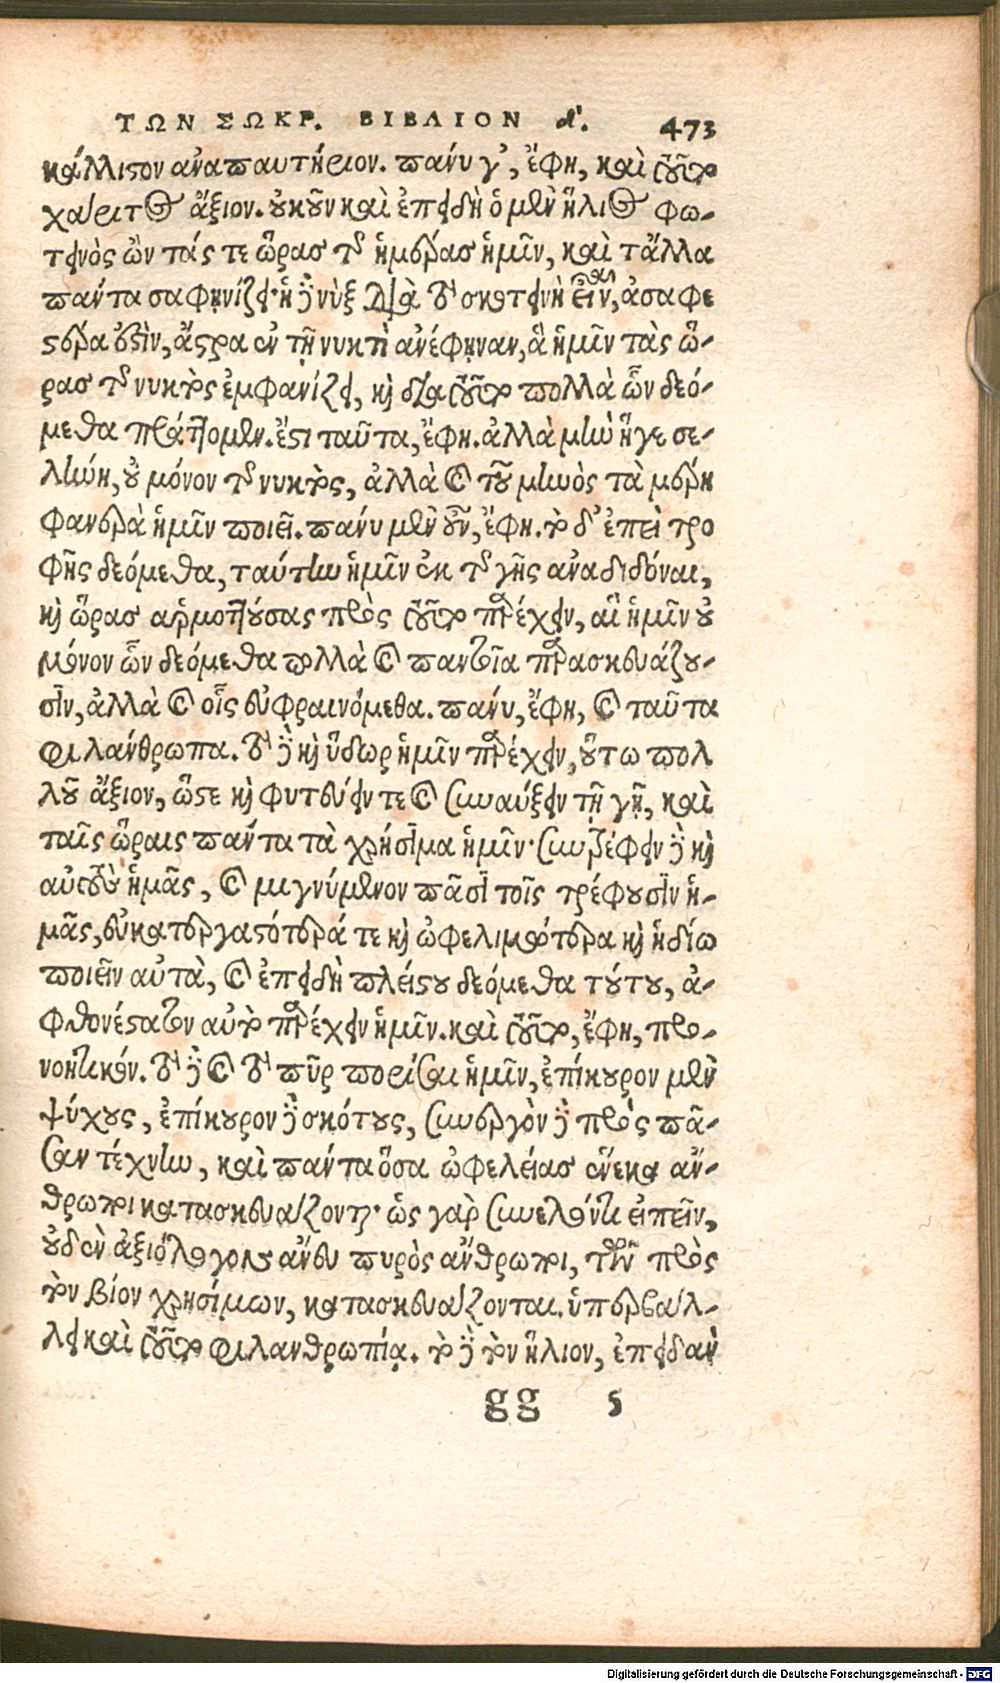 ΤΩΝ ΣΩΚΡ. ΒΙΒΛΙΟΝ δ'. 473
κάλλιστον ἀναπαυτήριον. πάνυ γ', ἔφη, καὶ τοῦτο
χάριτος ἄξιον. οὐκοῦν καὶ ἐπειδὴ ὁ μὲν ἥλιος φω-
τεινὸς ὢν τάς τε ὥρας τῆς ἡμέρας ἡμῖν, καὶ τἄλλα
πάντα σαφηνίζει· ἡ δὲ νὺξ διὰ τὸ σκοτεινὴ εἶναι, ἀσαφε
στέρα ἐστὶν, ἄστρα ἐν τῇ νυκτὶ ἀνέφηναν, ἃ ἡμῖν τὰς ὥ-
ρας τῆς νυκτὸς ἐμφανίζει, καὶ διὰ τοῦτο πολλὰ ὧν δεό-
μεθα πράττομεν. ἔστι ταῦτα, ἔφη. ἀλλὰ μὴν ἥγε σε-
λήνη, οὐ μόνον τῆς νυκτὸς, ἀλλὰ καὶ τοῦ μηνὸς τὰ μέρη
φανερὰ ἡμῖν ποιεῖ. πάνυ μὲν οὖν, ἔφη. τὸ δ' ἐπεὶ τρο
φῆς δεόμεθα, ταύτην ἡμῖν ἐκ τῆς γῆς ἀναδιδόναι,
καὶ ὥρας ἁρμοττούσας πρὸς τοῦτο παρέχειν, αἳ ἡμῖν οὐ
μόνον ὧν δεόμεθα πολλὰ καὶ παντοῖα παρασκευάζου-
σιν, ἀλλὰ καὶ οἷς εὐφραινόμεθα. πάνυ, ἔφη, καὶ ταῦτα
φιλάνθρωπα. τὸ δὲ καὶ ὕδωρ ἡμῖν παρέχειν, οὕτω πολ
λοῦ ἄξιον, ὥστε καὶ φυτεύειν τε καὶ συναύξειν τῇ γῇ, καὶ
ταῖς ὥραις πάντα τὰ χρήσιμα ἡμῖν· συντρέφειν δὲ καὶ
αὐτοὺς ἡμᾶς, καὶ μιγνύμενον πᾶσι τοῖς τρέφουσιν ἡ-
μᾶς, εὐκατεργαστότερά τε καὶ ὠφελιμώτερα καὶ ἡδίω
ποιεῖν αὐτὰ, καὶ ἐπειδὴ πλείστου δεόμεθα τούτου, ἀ-
φθονέστατον αὐτὸ παρέχειν ἡμῖν. καὶ τοῦτο, ἔφη, προ-
νοητικόν. τὸ δὲ καὶ τὸ πῦρ πορίσαι ἡμῖν, ἐπίκουρον μὲν
ψύχους, ἐπίκουρον δὲ σκότους, συνεργὸν δὲ πρὸς πᾶ-
σαν τέχνην, καὶ πάντα ὅσα ὠφελείας ἕνεκα ἄν-
θρωποι κατασκευάζονται· ὡς γὰρ συνελόντι εἰπεῖν,
οὐδὲν ἀξιόλογον ἄνευ πυρὸς ἄνθρωποι, τῶν πρὸς
τὸν βίον χρησίμων, κατασκευάζονται. ὑπερβάλ-
λει καὶ τοῦτο φιλανθρωπίᾳ. τὸ δὲ τὸν ἥλιον, ἐπειδὰν
gg 5
Digitalisierung gefördert durch die Deutsche Forschungsgemeinschaft - DFG